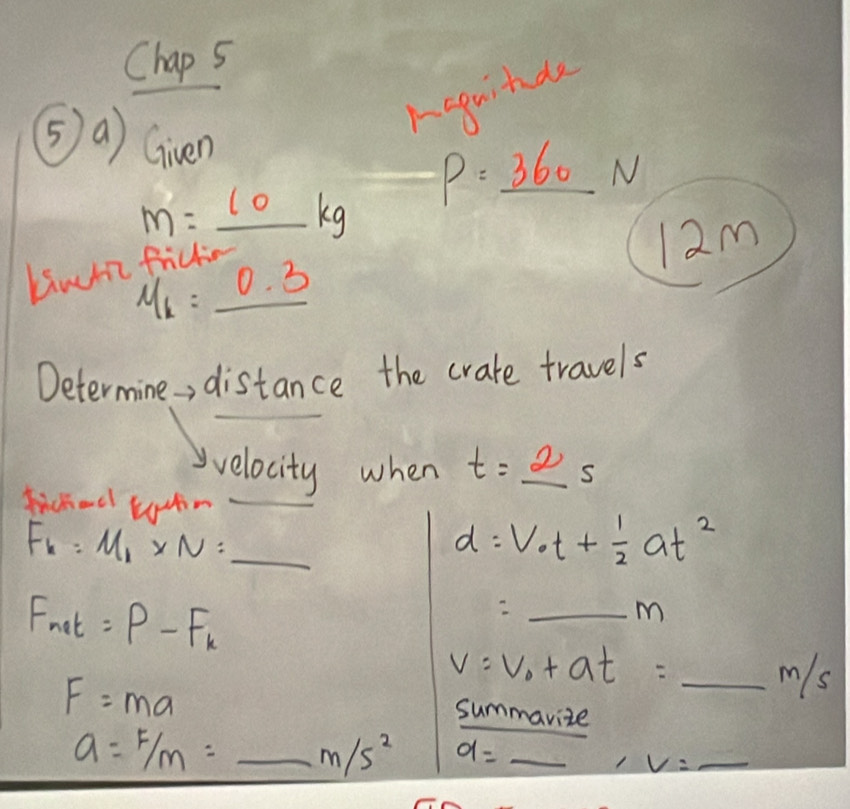 Chap 5
magnitude
5) a) Given
P = 360 N
m = 10 kg
12m
kinetic friction
Mk = 0.3
Determine → distance the crate travels
velocity when t = 2 s
frictional Equation
Fk = Mk × N = ___
Fnet = P - Fk
F = ma
a = F/m = ___ m/s²
d = V₀t + 1/2 at²
= ___ m
v = v₀ + at = ___ m/s
summarize
d = ___ , v = ___